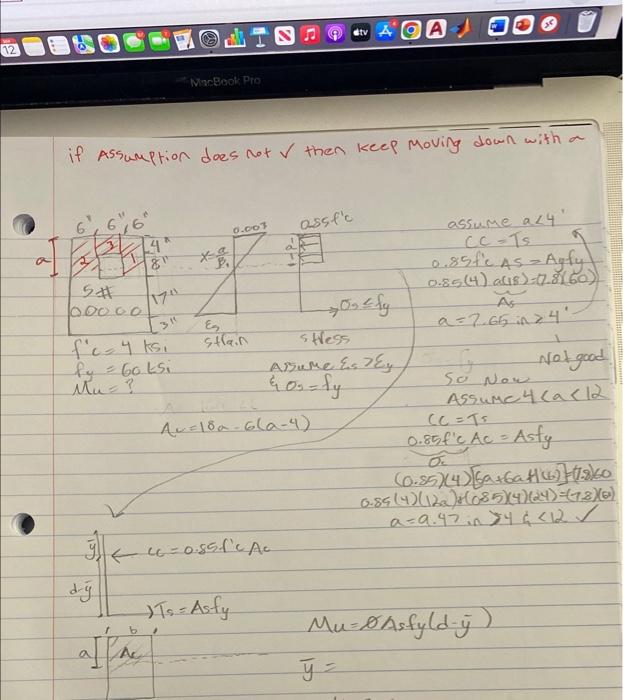 12
tv
A
MacBook Pro
if Assumption does not √ then keep moving down with a
6" 6" 6"
a
2 3 1
4"
8"
17"
3"
5#
00000
f'c = 4 ksi
fy = 60 ksi
Mu = ?
0.003
x = a/β1
εs
strain
.85f'c
a
σs ≤ fy
stress
Assume εs > εy
& σs = fy
Ac = 18a - 6(a-4)
assume a<4"
Cc = Ts
0.85f'c As = Asfy
0.85(4) a(18) = (7.8)(60)
As
a = 7.65 in ≥ 4"
Not good
So Now
Assume 4<a<12
Cc = Ts
0.85f'c Ac = Asfy
(0.85)(4)[6a+6a+4(6)] = (7.8)60
0.85(4)(12a)+(0.85)(4)(24) = (7.8)(60)
a = 9.47 in >4 & <12 √
ȳ
Cc = 0.85f'c Ac
d-ȳ
Ts = Asfy
Mu = ØAsfy(d-ȳ)
b
a
Ac
ȳ =